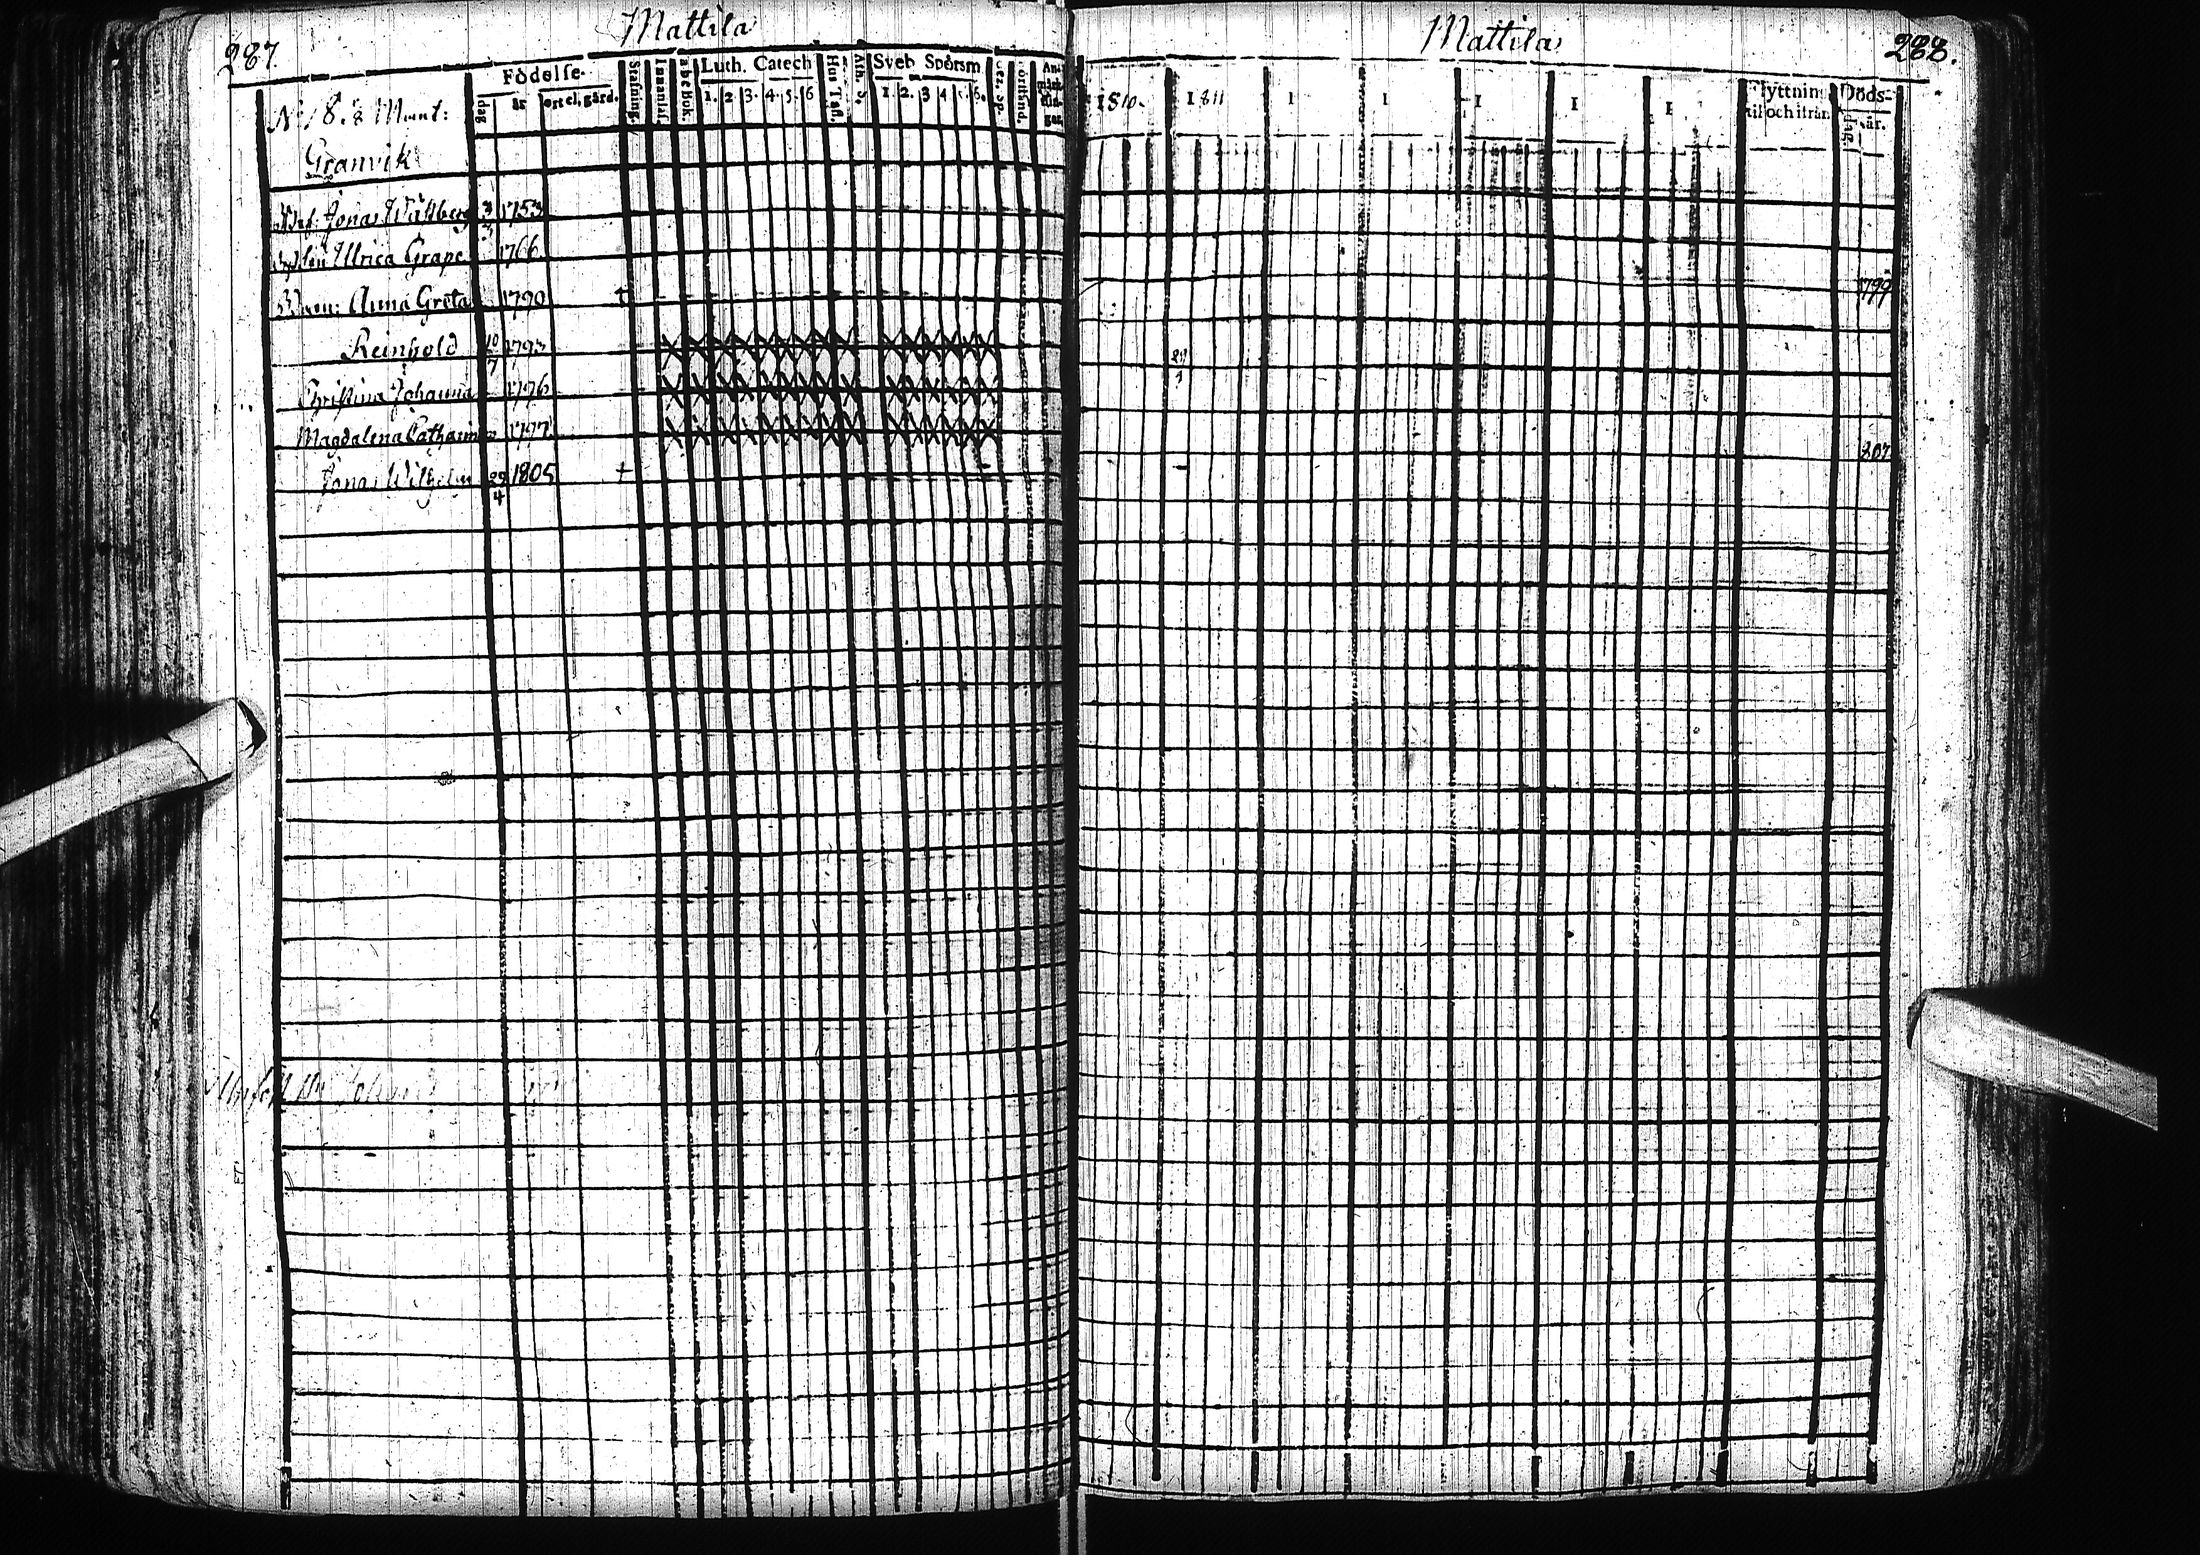 287.
Mattila
Födelse
Stafning.
Innanläs.
abc bok
Luth. Catech
Hus Tafl.
Ath. S.
Sveb Spörsm
Förstånd.
dag
år
ort el. gård.
1. 2. 3. 4. 5. 6
1. 2. 3 4 5. 6.
Granvik
Jonas Wallberg 1753
Ulrica Grape 1766
Anna Greta 1790 +
Reinhold 10/7 1793
Christina Johanna 1796
Magdalena Catharina 1797
Jonas Wilhelm 29/4 1805 +
Mattila
288.
1810.
1811
I
I
I
I
I
Flyttning
til och ifrån
Döds-
dag.
år.
1799
807